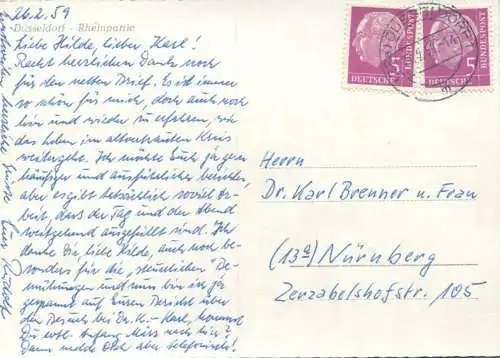 26.2.59
Düsseldorf - Rheinpartie
Liebe Hilde, lieber Karl!
Recht herzlichen Dank noch
für den netten Brief. Es ist immer
so schön für mich, doch auch noch
hin und wieder zu erfahren, wie
das Leben im altvertrauten Kreis
weitergeht. Ich möchte Euch ja gern
häufiger und ausführlicher berichten,
aber es gibt tatsächlich soviel Ar-
beit, dass der Tag und der Abend
weitgehend ausgefüllt sind. Ich
danke Dir, liebe Hilde, auch noch be-
sonders für die "steuerlichen" Be-
mühungen und nun bin ich ja
gespannt auf Euren Bericht über
den Besuch bei Dr. K. - Karl, kommst
Du evtl. Anfang März noch hier?
Dann melde Dich aber telefonisch!
herzliche Grüße Euer Rudolf
5
DEUTSCHE
BUNDESPOST
5
DEUTSCHE
BUNDESPOST
Herrn
Dr. Karl Brenner u. Frau
(13a) Nürnberg
Zerzabelshofstr. 105